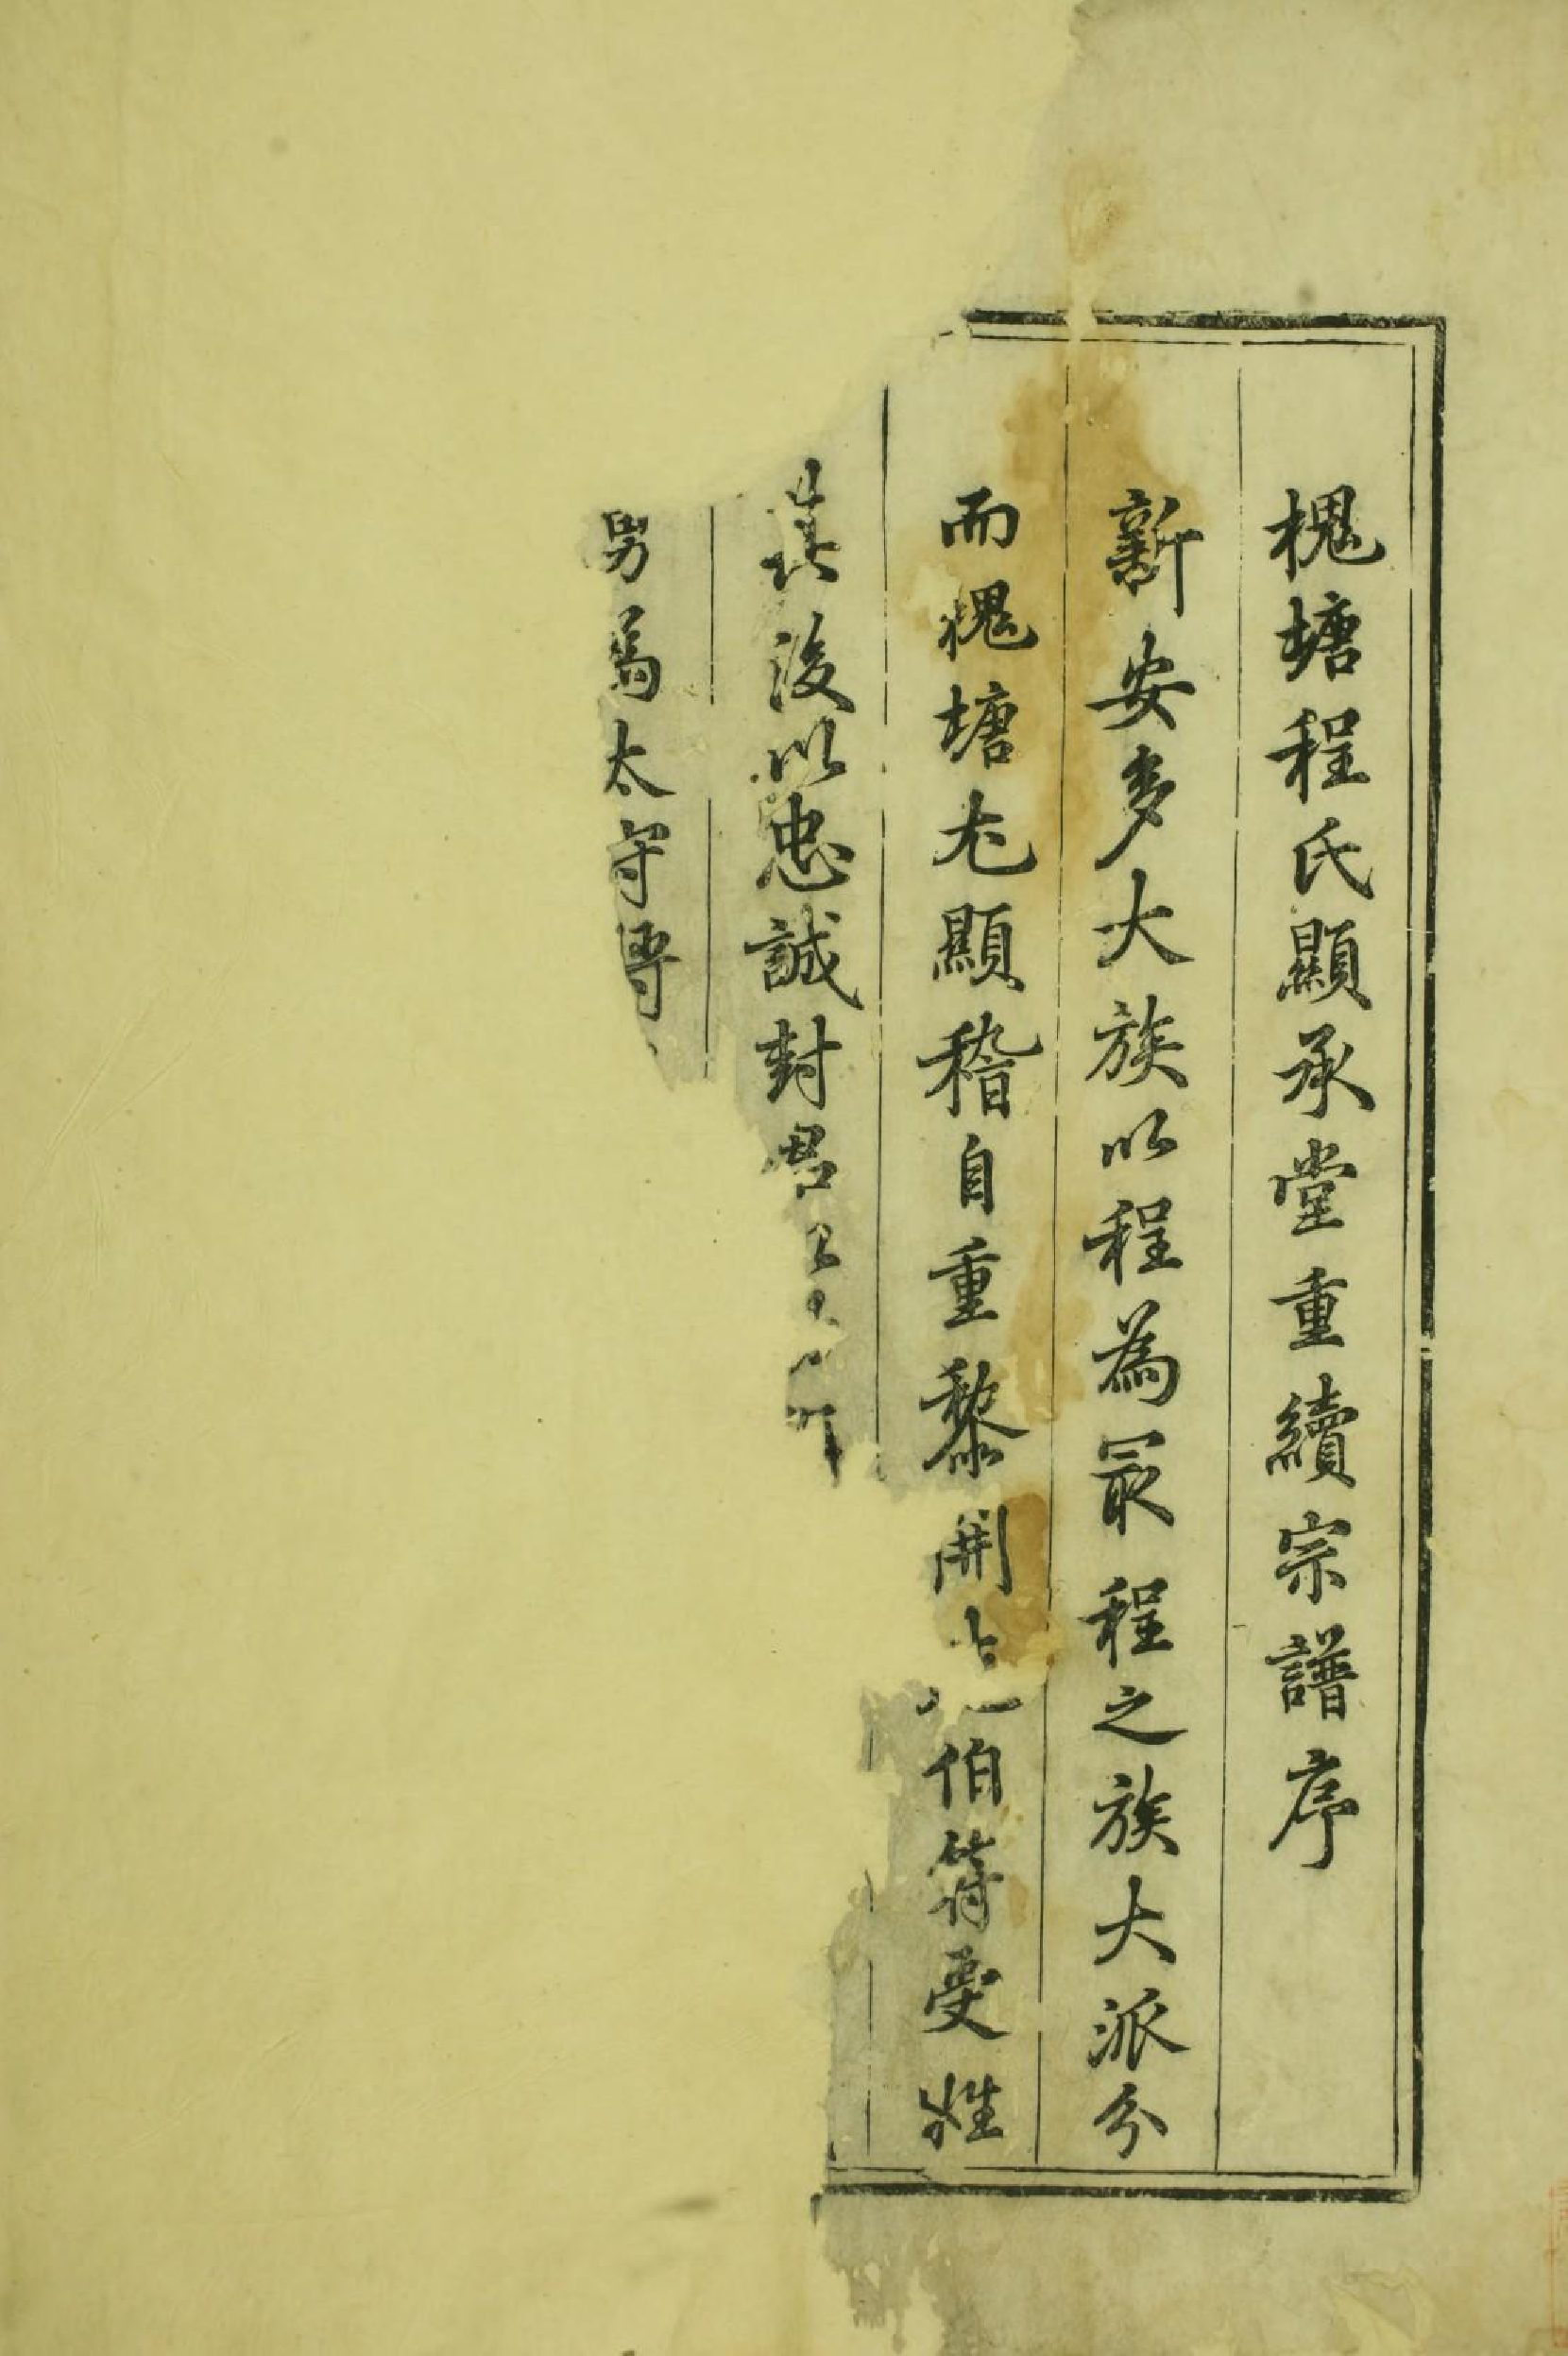 槐塘程氏顯承堂重續宗譜序
新安多大族以程為冣程之族大派分
而槐塘尤顯稽自重黎開伯符受姓
其後以忠誠封君
男為太守